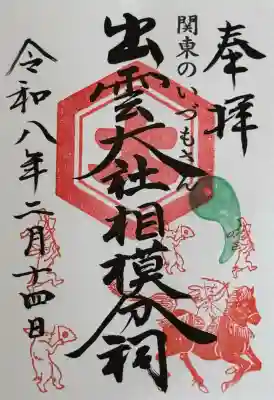 奉拝
関東のいづもさん
出雲大社相模分祠
令和八年二月十四日